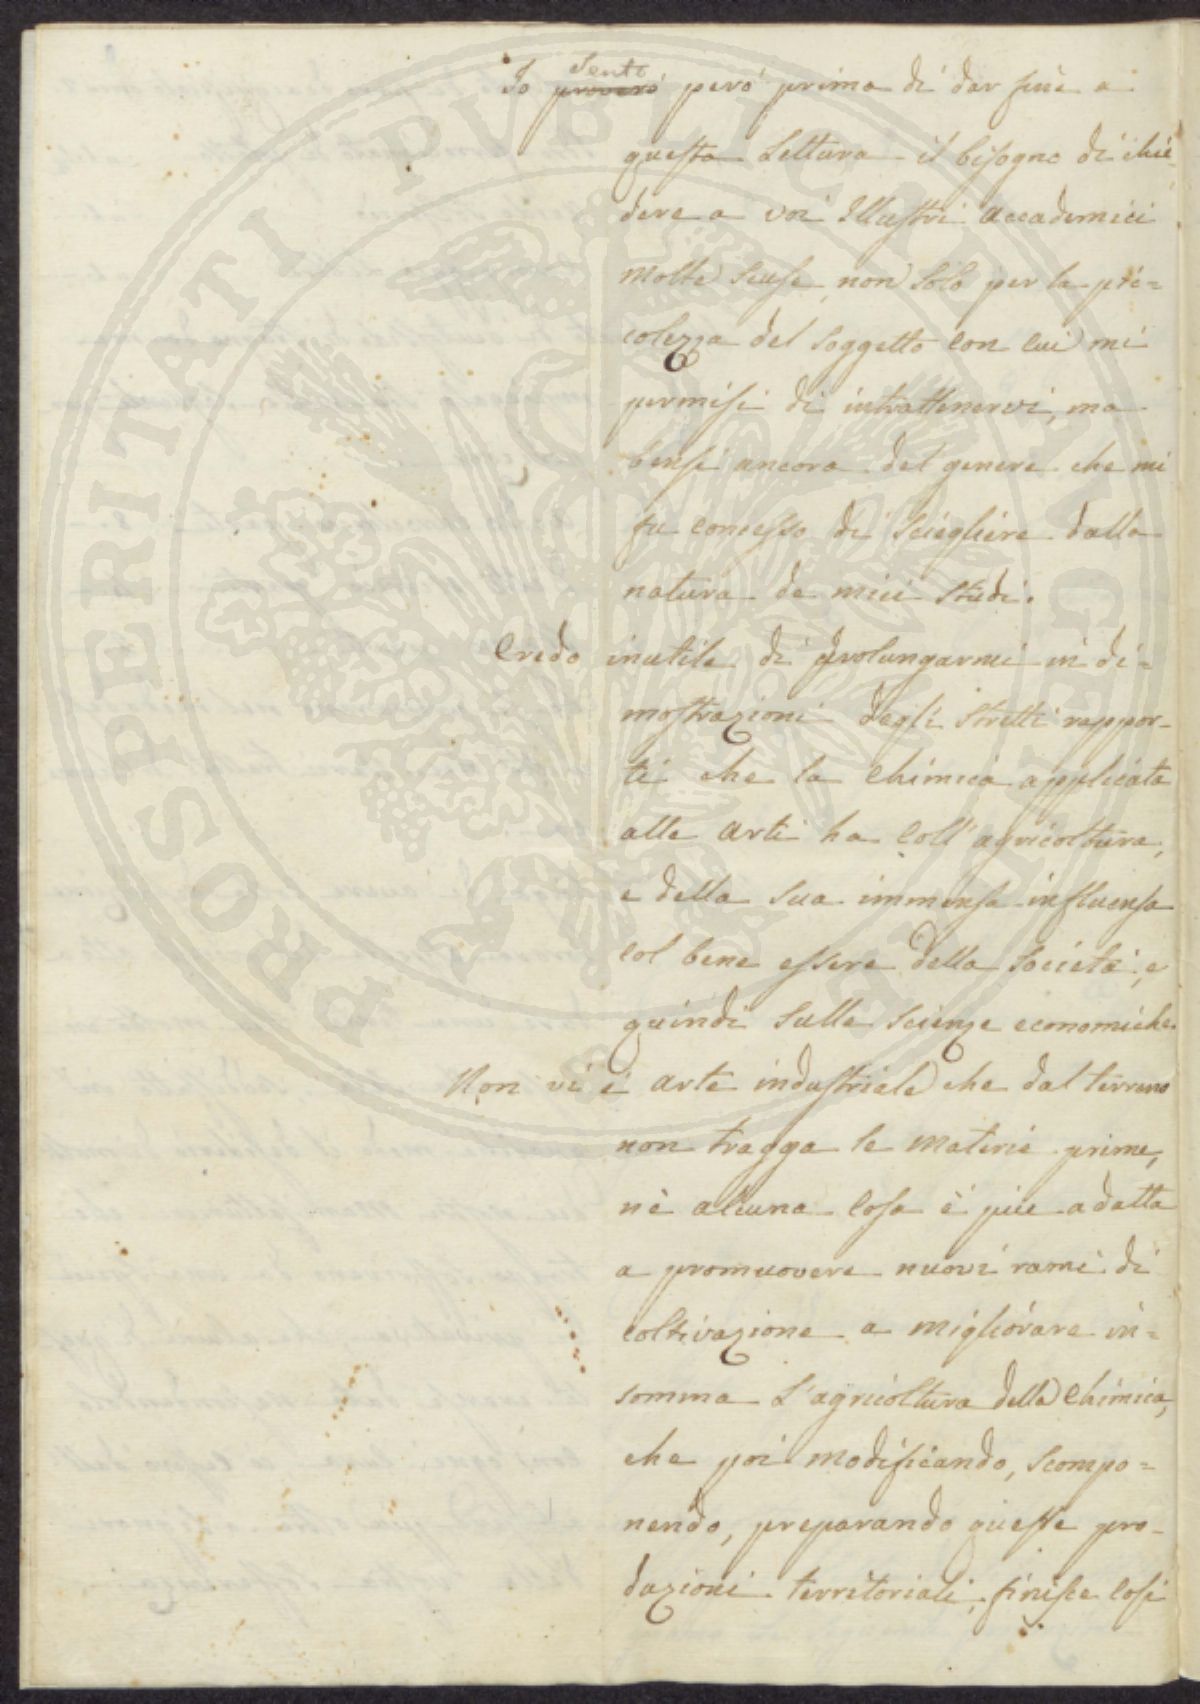 Io ~~proverò~~ sento però prima di dar fine a
questa Lettura il bisogno di chie-
dere a voi Illustri Accademici
molte scuse, non solo per la pic-
colezza del soggetto con cui mi
permisi di intrattenervi, ma
bensi ancora del genere che mi
fu concesso di sciegliere dalla
natura de miei studi.
Credo inutile di prolungarmi in di-
mostrazioni degli stretti rappor-
ti che la Chimica applicata
alle arti ha coll'agricoltura,
e della sua immensa influensa
col bene essere della società, e
quindi sulle scienze economiche.
Non vi è arte industriale che dal terreno
non tragga le materie prime,
nè alcuna cosa è piu adatta
a promuovere nuovi rami di
coltivazione a migliorare in-
somma l'agricoltura della Chimica,
che poi modificando, scompo-
nendo, preparando queste pro-
duzioni territoriali, finisce cosi
PROSPERITATI PVBLICAE AVGENDAE